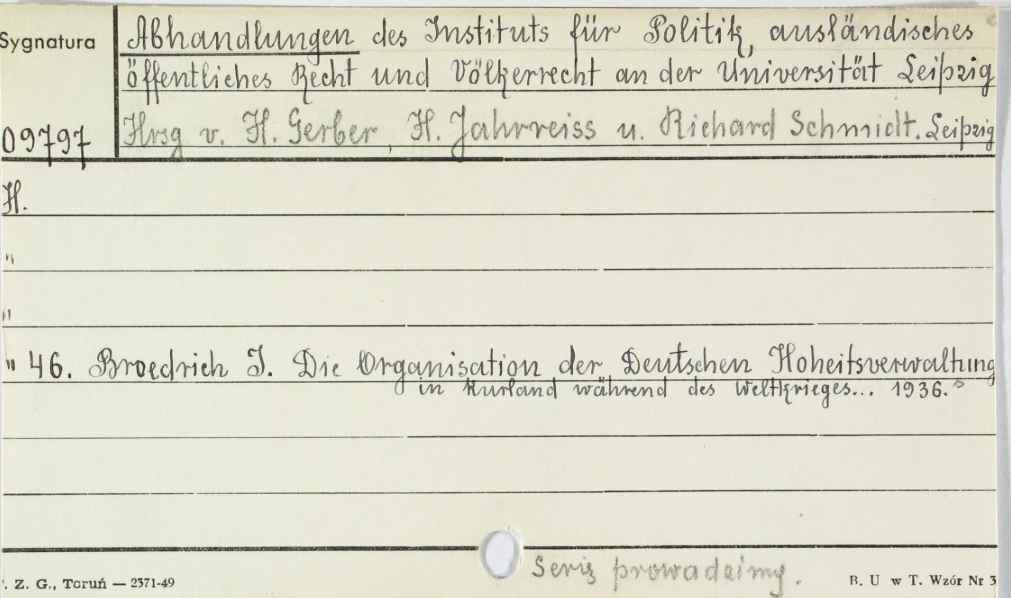 Sygnatura
Abhandlungen des Instituts für Politik, ausländisches
öffentliches Recht und Völkerrecht an der Universität Leipzig
09797
Hrsg v. H. Gerber, H. Jahrreiss u. Richard Schmidt. Leipzig
H.
"
"
" 46. Broedrich J. Die Organisation der Deutschen Hoheitsverwaltung
in Kurland während des Weltkrieges... 1936.
Serię prowadzimy.
. Z. G., Toruń — 2371-49
B. U w T. Wzór Nr 3